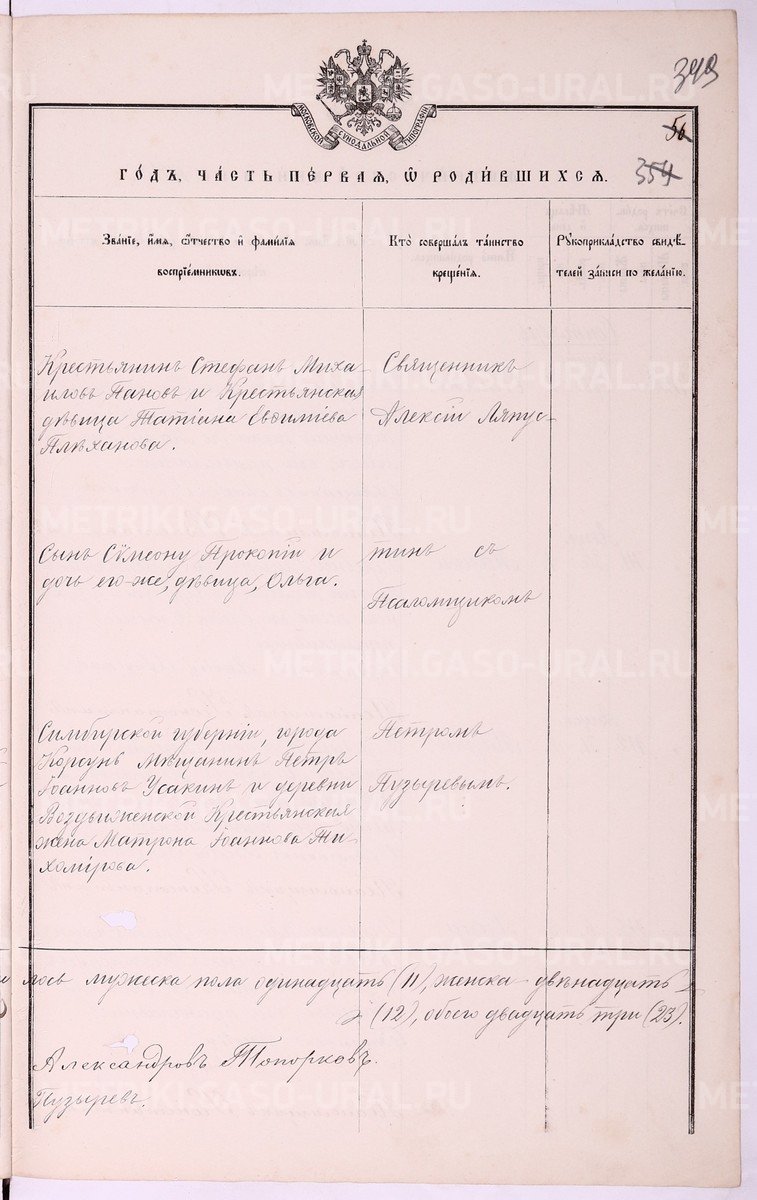 METRIKI.GASO-URAL.RU
349
МОСКОВСКОЙ СѴНОДАЛЬНОЙ ТИПОГРАФІИ
56
354
ГО́ДЪ, ЧА́СТЬ ПЕ́РВАЯ, Ѽ РОДИ́ВШИХСЯ.
Зва́ніе, и́мя, ѻ҆́тчество и҆ фами́лія
воспріе́мникѡвъ.
Кто̀ соверша́лъ та́инство
креще́нія.
Рꙋкоприкла́дство свидѣ́-
телей за́писи по жела́нію.
Крестьянинъ Стефанъ Миха-
иловъ Пановъ и Крестьянская
дѣвица Татіана Евѳиміева
Плѣханова.
Священникъ
Алексій Ляпус-
METRIKI.GASO-URAL.RU
Сынъ Сѵмеону Прокопій и
дочь его-же, дѣвица, Ольга.
тинъ съ
Псаломщикомъ
METRIKI.GASO-URAL.RU
Симбирской губерніи, города
Корсунъ Мѣщанинъ Петръ
Іоанновъ Усакинъ и деревни
Воздвиженской Крестьянская
жена Матрона Іоаннова Ти-
хомірова.
Петромъ
Пузыревымъ.
METRIKI.GASO-URAL.RU
лось мужеска пола одинадцать (11), женска двѣнадцать
(12), обоего двадцать три (23).
Александровъ Топорковъ.
Пузыревъ.
METRIKI.GASO-URAL.RU